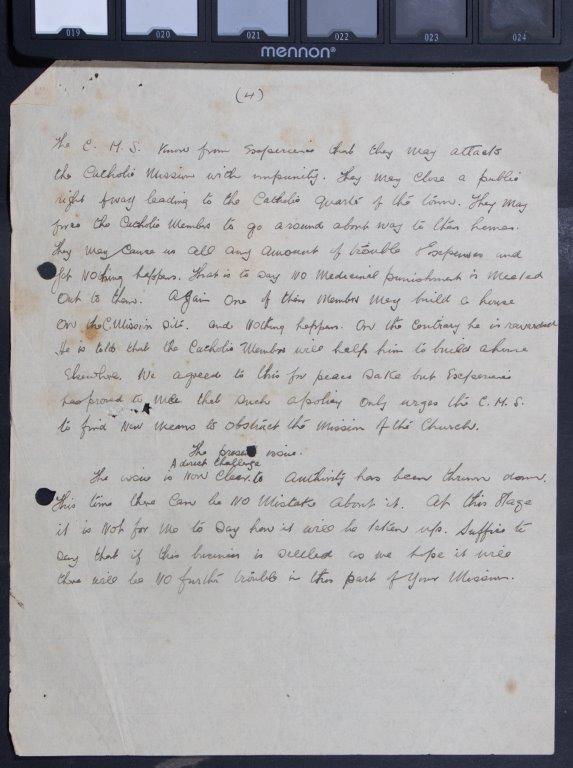 019 020 021 022 023 024
mennon®
(4)
The C. M. S. know from Experience that they may attack
the Catholic Mission with impunity. They may close a public
right of way leading to the Catholic quarter of the town. They May
force the Catholic Member to go around about way to their homes.
They may Cause us all any amount of trouble & Expenses and
yet Nothing happens. That is to say No Medicinal punishment is Meeted
out to them. Again One of their Member May build a house
on the C. Mission site. and Nothing happens. On the contrary he is rewarded
He is told that the Catholic Member will help him to build a house
Elsewhere. We agreed to this for peace sake but Experience
has proved to Me that such a policy only urges the C. M. S.
to find New Means to obstruct the Mission of the Church.
The present issue.
A direct Challenge
The issue is Now Clear. to Authority has been thrown down.
This time there Can be No Mistake About it. At this Stage
it is Not for Me to say how it will be taken up. Suffice to
say that if this business is settled as we hope it will
there will be No further trouble in this part of Your Mission.